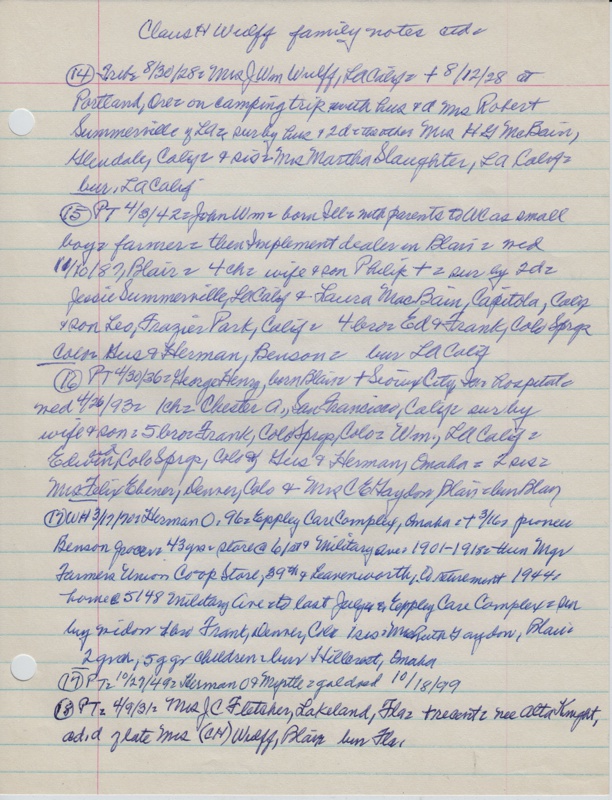 Claus H Wulff family notes ctd=
(14) Trib= 8/30/28= Mrs J Wm Wulff, LA Calif= + 8/12/28 at
Portland, Ore= on camping trip with hus & d Mrs Robert
Summerville of LA= sur by hus & 2d= other Mrs H G McBain,
Glendale, Calif= & sis= Mrs Martha Slaughter, LA Calif=
bur. LA Calif
(15) PT 4/3/42= John Wm= born Ill= with parents to WC as small
boy= farmer= then Implement dealer in Blair= med
11/10/87, Blair= 4ch= wife & son Philip += sur by 2d=
Jessie Summerville, LA Calif & Laura MacBain, Capitola, Calif
& son Leo, Frazier Park, Calif= 4 bro= Ed & Frank, Colo Sprgs
Colo= Gus & Herman, Benson= bur LA Calif
(16) PT 4/30/36= George Henry, born Blair + Sioux City, Ia= Hospital=
med 4/26/93= 1ch= Chester A., San Francisco, Calif= sur by
wife & son= 5 bro= Frank, Colo Sprgs, Colo= Wm., LA Calif=
Edwin, Colo Sprgs, Colo & Gus & Herman, Omaha= 2 sis=
Mrs Felix Ebener, Denver, Colo & Mrs C E Gaydon, Blair= bur Blair
(17) WH 3/17/70= Herman O. 96= Eppley Care Complex, Omaha= + 3/16= pioneer
Benson grocer= 43 yrs= store @ 61st & Military Ave= 1901-1918= then Mgr
Farmers Union Co-op Store, 39th & Leavenworth, to retirement 1944=
home @ 5148 Military Ave= to last July= @ Eppley Care Complex= sur
by widow 1 bro Frank, Denver, Colo 1 sis= Mrs Ruth Gaydon, Blair=
2 gch, 5 g gr children= bur Hillcrest, Omaha
(17) PT= 10/27/49= Herman O & Myrtle= gold wed 10/18/99
(18) PT= 4/9/31= Mrs J C Fletcher, Lakeland, Fla= + recent= nee Alta Knight,
ad. d of late Mrs (CH) Wulff, Blair bur Fla.